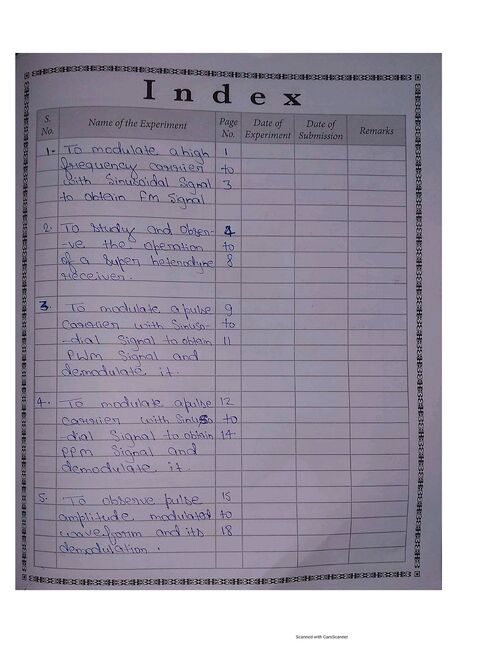 Index
S. No. Name of the Experiment Page No. Date of Experiment Date of Submission Remarks
1. To modulate a high 1
frequency carrier to
with Sinusoidal Signal 3
to obtain FM Signal
2. To study and Obser- 4
-ve the operation to
of a super heterodyne 8
receiver.
3. To modulate a pulse 9
Carrier with Sinuso- to
-dial Signal to obtain 11
PWM Signal and
demodulate it.
4. To modulate a pulse 12
Carrier with Sinuso to
-dial Signal to obtain 14
PPM Signal and
demodulate it.
5. To observe pulse 15
amplitude modulated to
waveform and its 18
demodulation.
Scanned with CamScanner